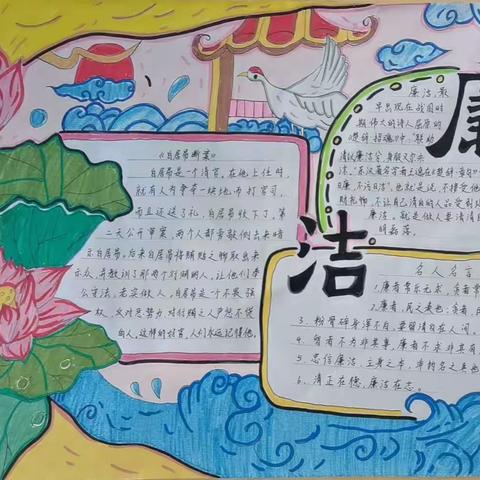 廉洁
《白居易断案》
白居易是一个清官，在他上任时，
就有人为争夺一块地而打官司，
而且还送了礼，白居易收下了。第
二天公开审案，两个人都
示白居易。后来白居易将贿赂之物取出来
示众，并教训了那两个行贿的人，让他们奉
公守法，老实做人。白居易是一个不畏强
权，
向人，这样的好官，人们永远记得他。
廉洁，最
早出现在战国时
期伟大的诗人屈原的
《楚辞·招魂》中"朕幼
清以廉洁兮，身服义尔未
沫。"东汉著名学者王逸在《楚辞·章句》中
曰廉，不污曰洁"。也就是说，不接受他
财礼物，不让自己清白的人品受到
廉洁，就是做人要清清白
明磊落。
名人名言
1.廉者常乐无求，贪者常
2.廉者，民之表也；贪者，民
3、粉骨碎身浑不怕，要留清白在人间。
4、贤者不为非其事，廉者不求非其有
5、忠信廉洁，立身之本，非钓名之具也
6、清正在德，廉洁在志。